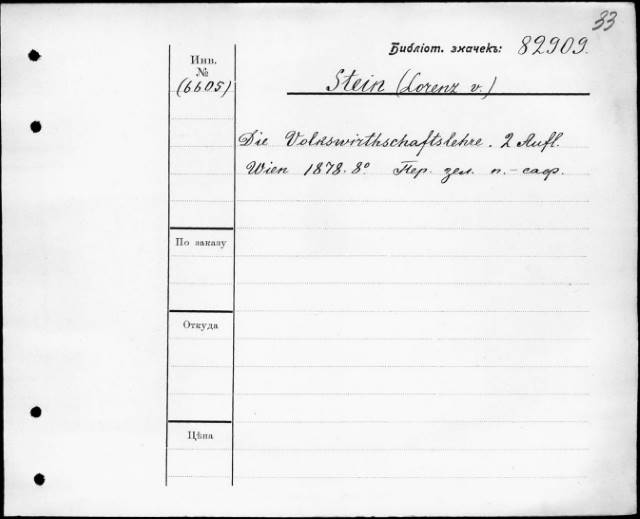 33
Библіот. значекъ: 82909.
Инв.
№
(6605)
Stein (Lorenz v.)
Die Volkswirthschaftslehre. 2 Aufl.
Wien 1878. 8° Пер. зел. п.-саф.
По заказу
Откуда
Цѣна